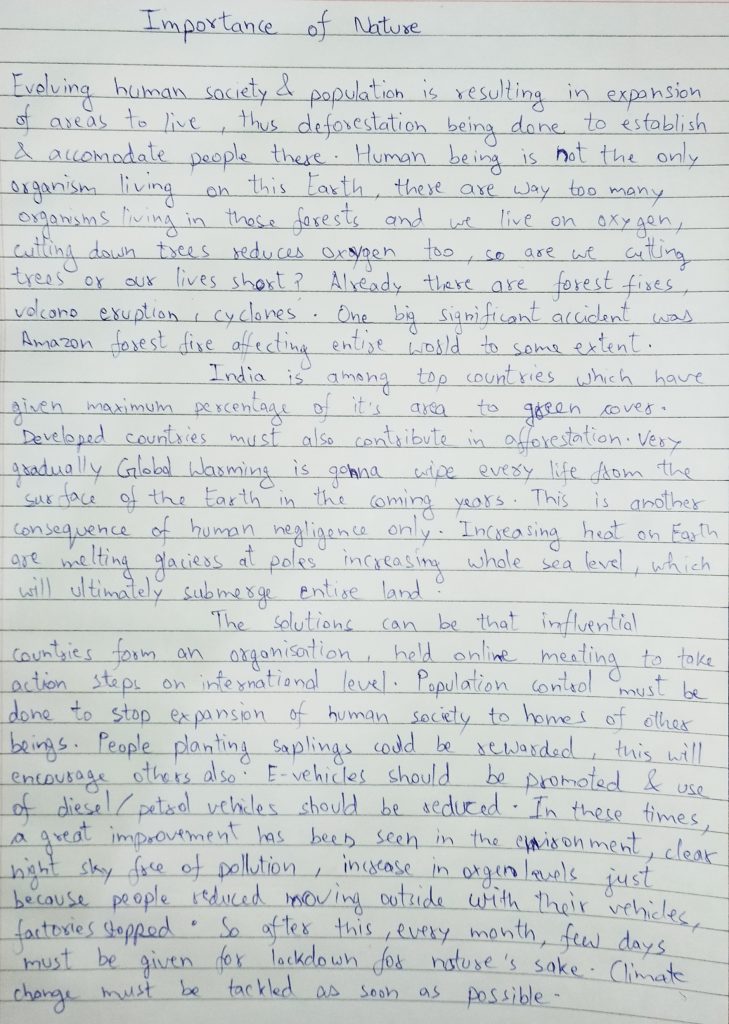 Importance of Nature
Evolving human society & population is resulting in expansion
of areas to live, thus deforestation being done to establish
& accomodate people there. Human being is not the only
organism living on this Earth, there are way too many
organisms living in those forests and we live on oxygen,
cutting down trees reduces oxygen too, so are we cutting
trees or our lives short? Already there are forest fires,
volcano eruption, cyclones. One big significant accident was
Amazon forest fire affecting entire world to some extent.
India is among top countries which have
given maximum percentage of it's area to green cover.
Developed countries must also contribute in afforestation. Very
gradually Global Warming is gonna wipe every life from the
surface of the Earth in the coming years. This is another
consequence of human negligence only. Increasing heat on Earth
are melting glaciers at poles increasing whole sea level, which
will ultimately submerge entire land.
The solutions can be that influential
countries form an organisation, held online meeting to take
action steps on international level. Population control must be
done to stop expansion of human society to homes of other
beings. People planting saplings could be rewarded, this will
encourage others also. E-vehicles should be promoted & use
of diesel/petrol vehicles should be reduced. In these times,
a great improvement has been seen in the environment, clear
night sky free of pollution, increase in oxgen levels just
because people reduced moving outside with their vehicles,
factories stopped. So after this, every month, few days
must be given for lockdown for nature's sake. Climate
change must be tackled as soon as possible.